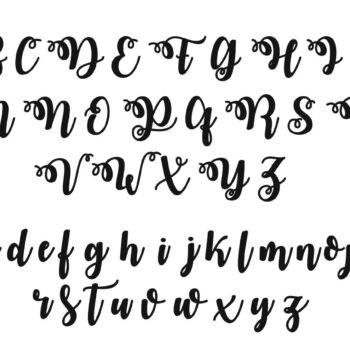 C D E F G H I
N O P Q R S
V W X Y Z
d e f g h i j k l m n o
r s t u v w x y z